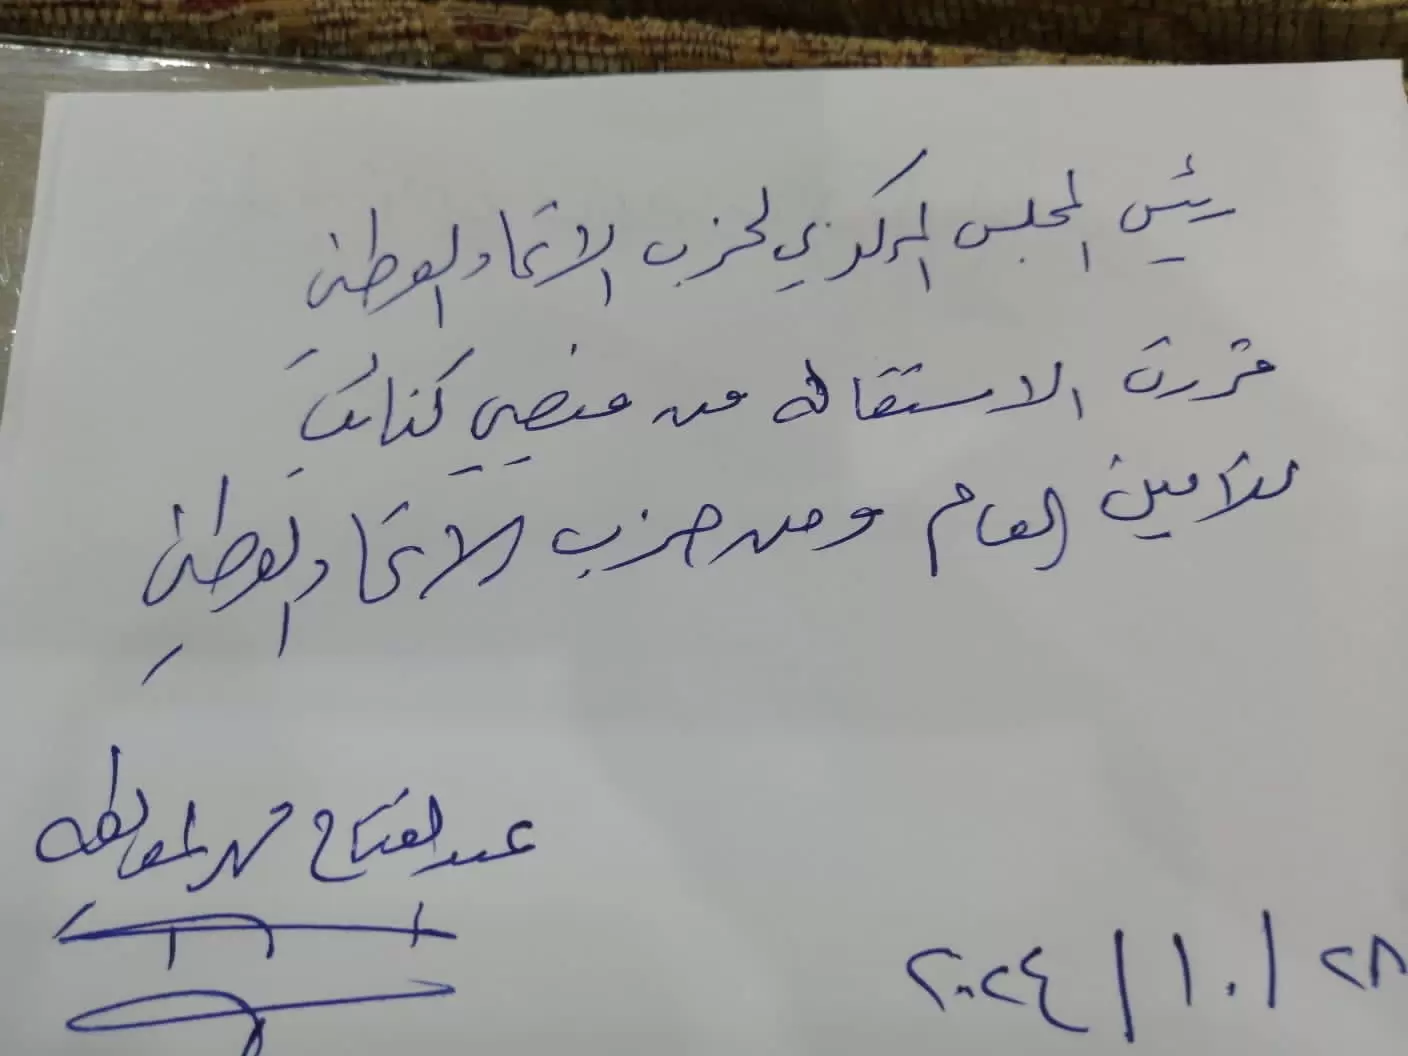 رئيس المجلس المركزي لحزب الاتحاد الوطني
قررت الاستقالة من منصبي كنائب
للأمين العام ومن حزب الاتحاد الوطني
عبد الفتاح محمد المعايطه
٢٨ / ١٠ / ٢٠٢٤